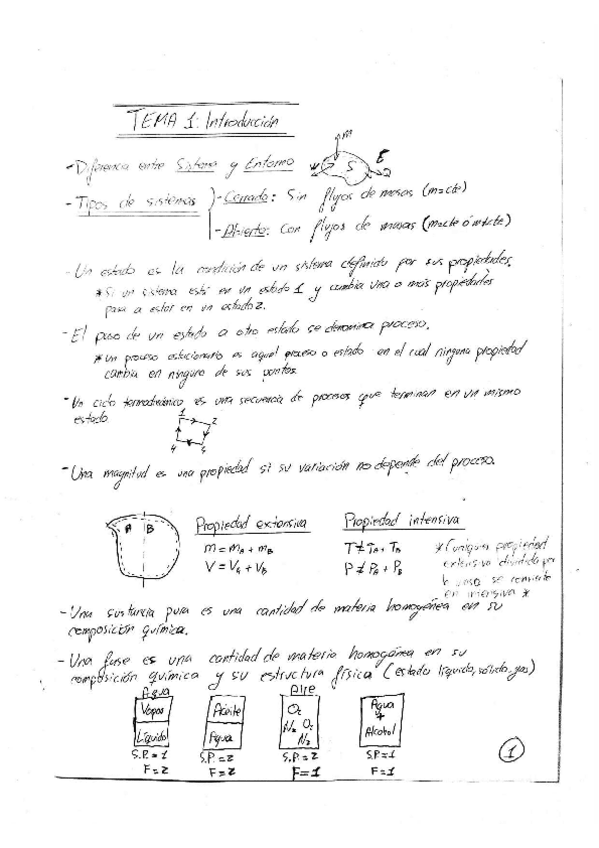 TEMA 1: Introducción
- Diferencia entre Sistema y Entorno
m
W
S
E
- Tipos de sistemas
- Cerrado: Sin flujos de masas (m=cte)
- Abierto: Con flujos de masas (m=cte ó m≠cte)
- Un estado es la condición de un sistema definido por sus propiedades.
* Si un sistema está en un estado 1 y cambia una o más propiedades
pasa a estar en un estado 2.
- El paso de un estado a otro estado se denomina proceso.
* Un proceso estacionario es aquel proceso o estado en el cual ninguna propiedad
cambia en ninguno de sus puntos.
- Un ciclo termodinámico es una secuencia de procesos que terminan en un mismo
estado.
1
2
4
3
- Una magnitud es una propiedad si su variación no depende del proceso.
A B
Propiedad extensiva
m = mA + mB
V = VA + VB
Propiedad intensiva
T ≠ TA + TB
P ≠ PA + PB
* Cualquier propiedad
extensiva dividida por
la masa se convierte
en intensiva *
- Una sustancia pura es una cantidad de materia homogénea en su
composición química.
- Una fase es una cantidad de materia homogénea en su
composición química y su estructura física (estado líquido, sólido, gas)
Agua
Vapor
Líquido
S.P. = 1
F = 2
Aceite
Agua
S.P. = 2
F = 2
Aire
O2
N2 O2
N2
S.P. = 2
F = 1
Agua
+
Alcohol
S.P. = 1
F = 1
1